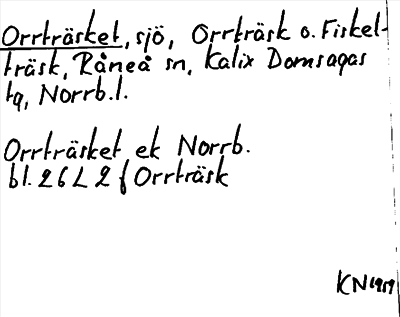 Orrträsket, sjö, Orrträsk o. Fiskel-
träsk, Råneå sn, Kalix Domsagas
tg, Norrb.l.
Orrträsket ek Norrb.
bl. 26L 2f Orrträsk
KN 1959